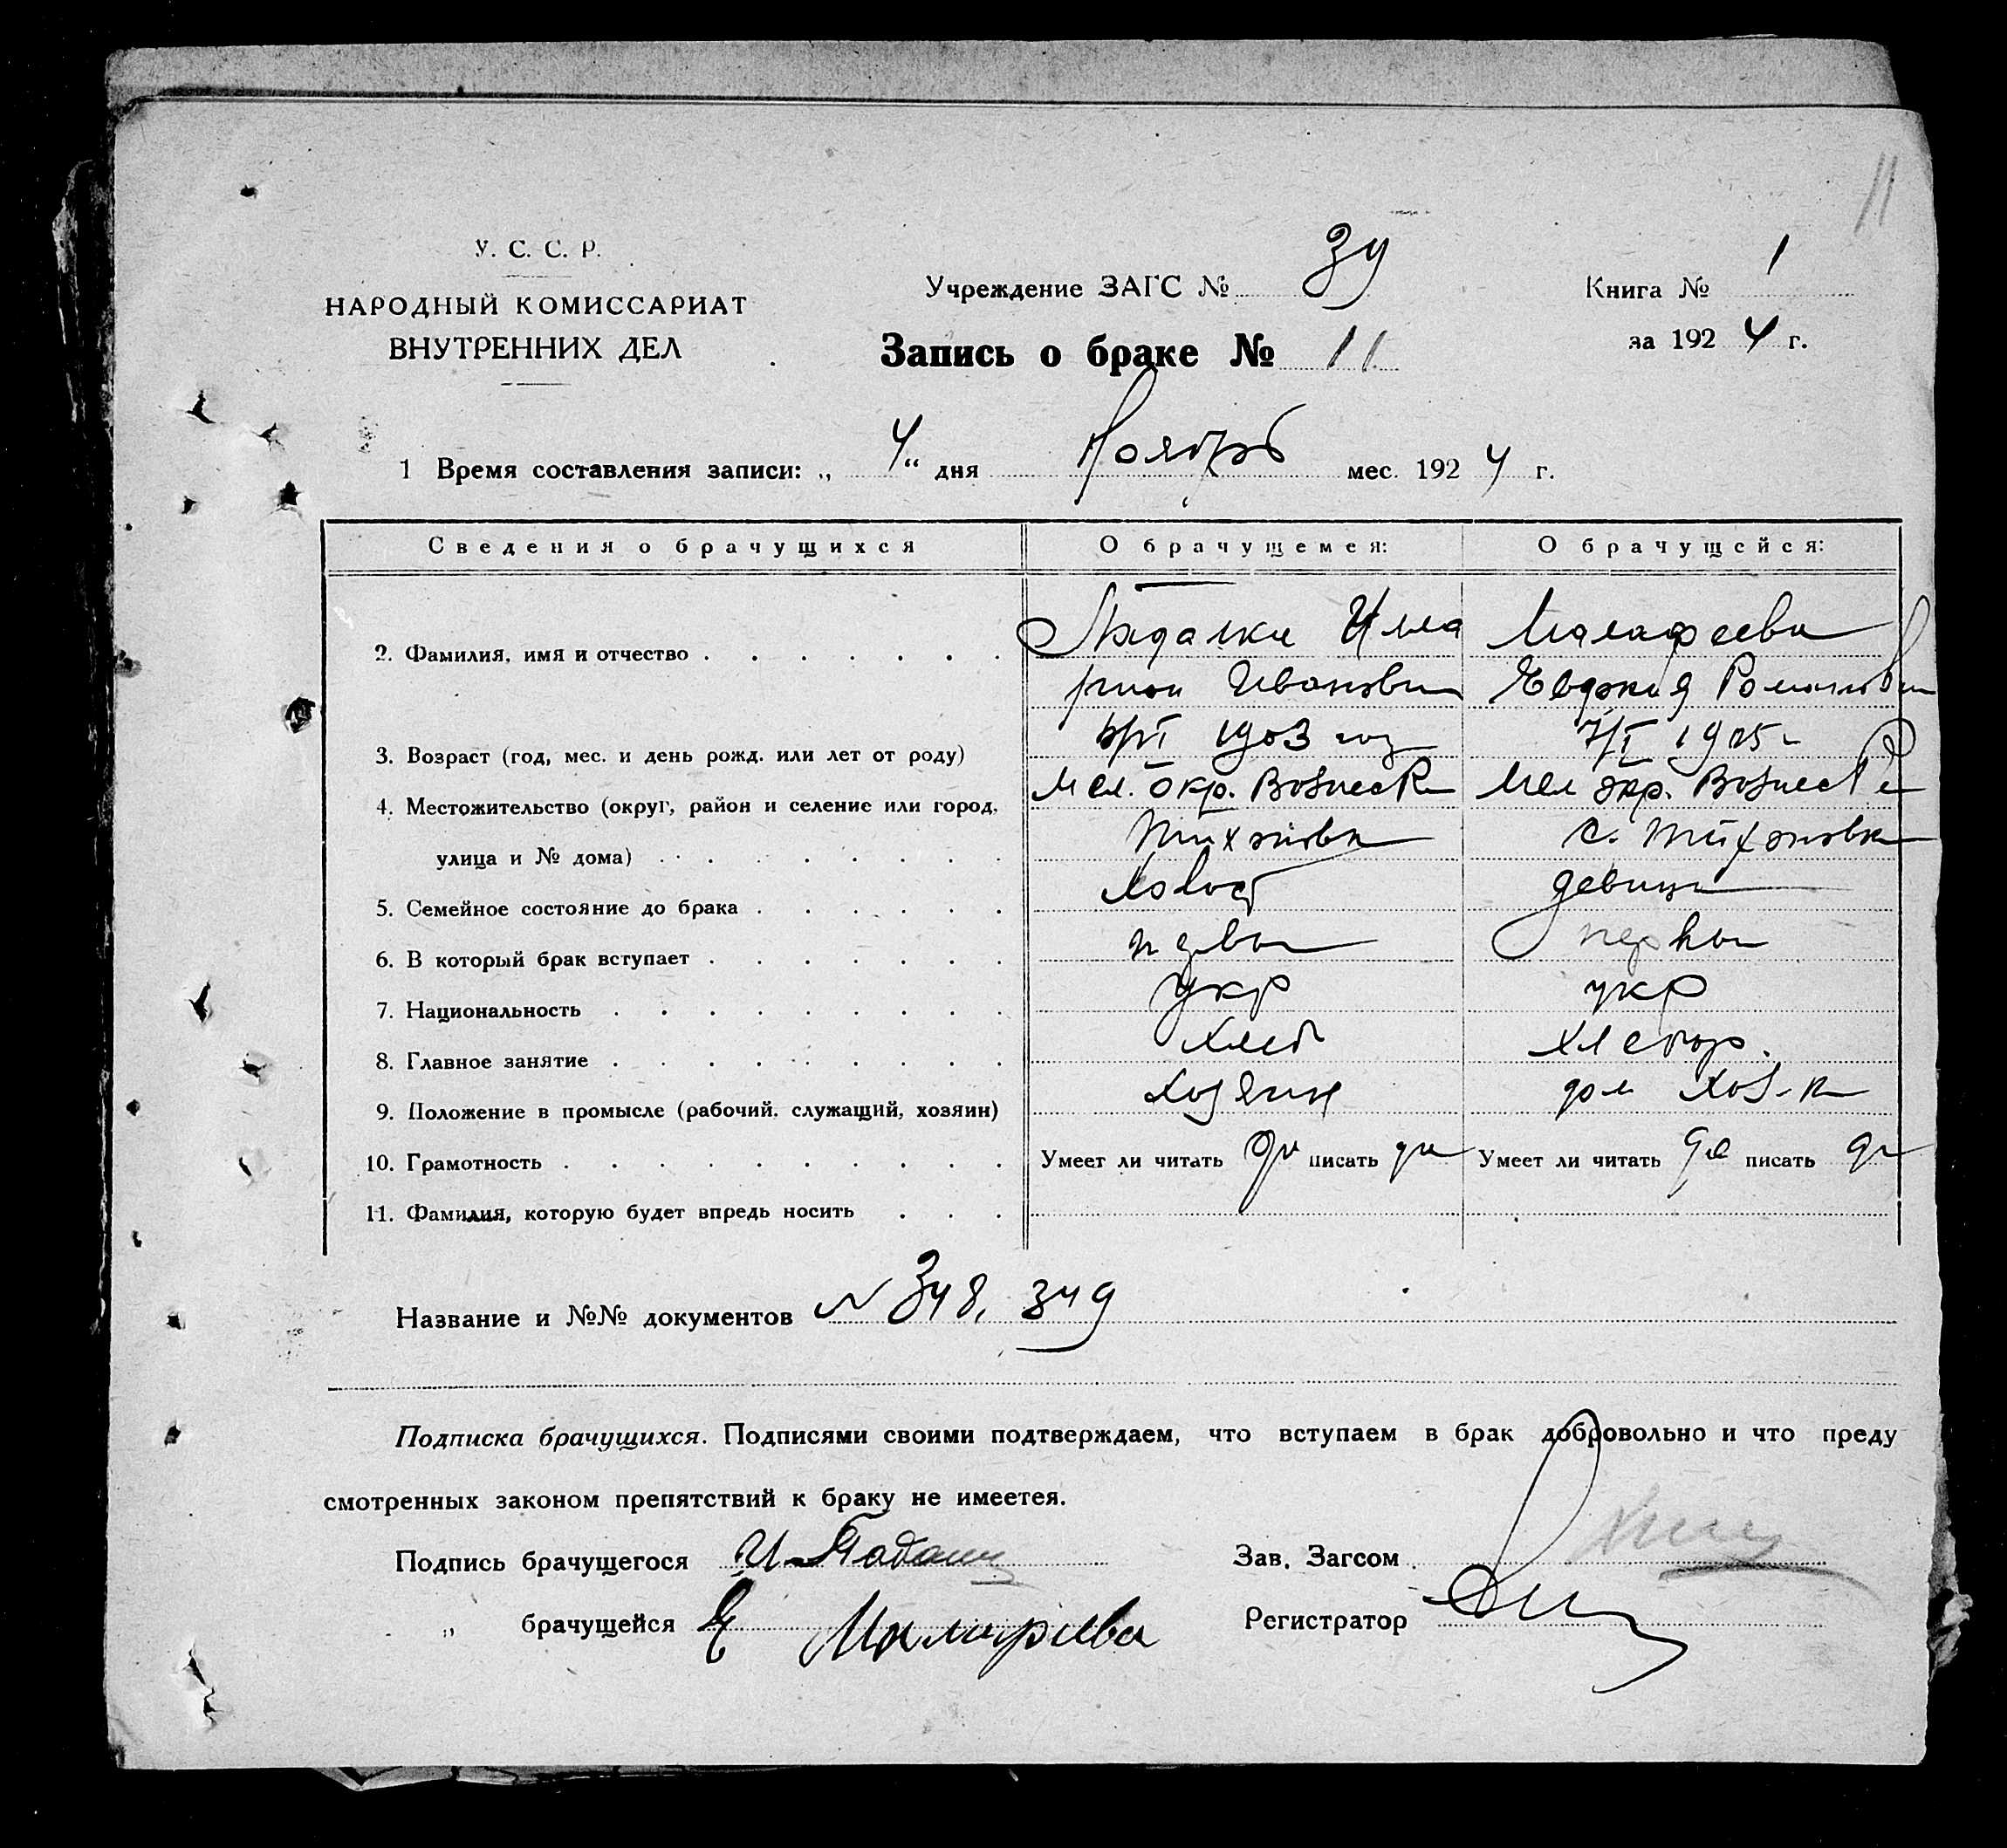 11
У. С. С. Р.
НАРОДНЫЙ КОМИССАРИАТ
ВНУТРЕННИХ ДЕЛ
Учреждение ЗАГС № 39
Запись о браке № 11
Книга № 1
за 1924 г.
1 Время составления записи: „ 4 “ дня Ноябрь мес. 1924 г.
Сведения о брачущихся О брачущемея: О брачущейся:
2. Фамилия, имя и отчество Илла Малафеева
рион Иванович Евдокия Романовн
3. Возраст (год, мес. и день рожд. или лет от роду) 1903 год 7/I 1905 г
4. Местожительство (округ, район и селение или город, Мел. окр. Вознес Мел окр. Вознес
улица и № дома) Тихоновка с. Тихоновка
5. Семейное состояние до брака Холост девица
6. В который брак вступает первый
7. Национальность Укр укр
8. Главное занятие Хлеб Хлебор.
9. Положение в промысле (рабочий, служащий, хозяин) Хозяин дом хоз-ка
10. Грамотность Умеет ли читать да писать да Умеет ли читать да писать да
11. Фамилия, которую будет впредь носить
Название и №№ документов № 348, 349
Подписка брачущихся. Подписями своими подтверждаем, что вступаем в брак добровольно и что преду
смотренных законом препятствий к браку не имеетея.
Подпись брачущегося И Зав. Загсом
„ брачущейся Е Малафеева Регистратор